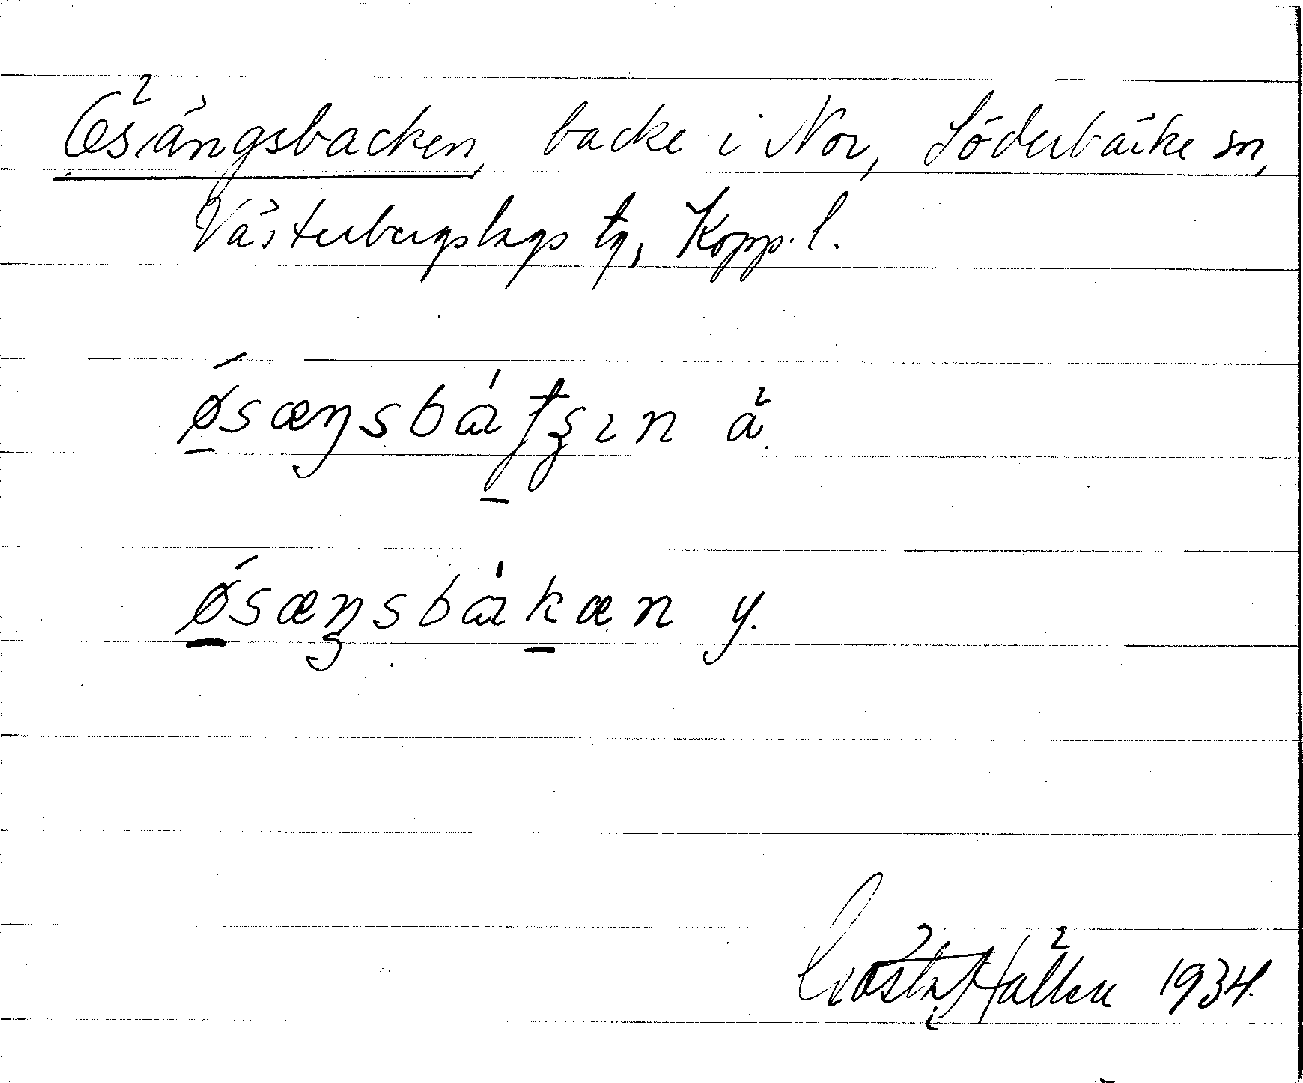 Ösängsbacken, backe i Nor, Söderbärke sn,
Västerbergslags tg, Kopp. l.
ǿsæŋsbátʂın ä.
ǿsæŋsbákæn y.
Gösta Hallén 1934.